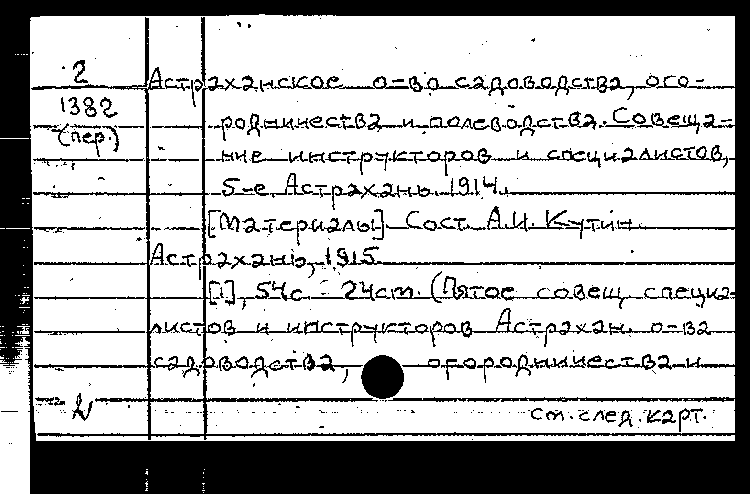 2
1382
(пер.)
Астраханское о-во садоводства, ого-
родничества и полеводства. Совеща-
ние инструкторов и специалистов,
5-е. Астрахань. 1914.
[Материалы]. Сост. А.И. Кутин.
Астрахань, 1915.
[1], 54с. 24см. (Пятое совещ. специа-
листов и инструкторов Астрахан. о-ва
садоводства, огородничества и
см. след. карт.